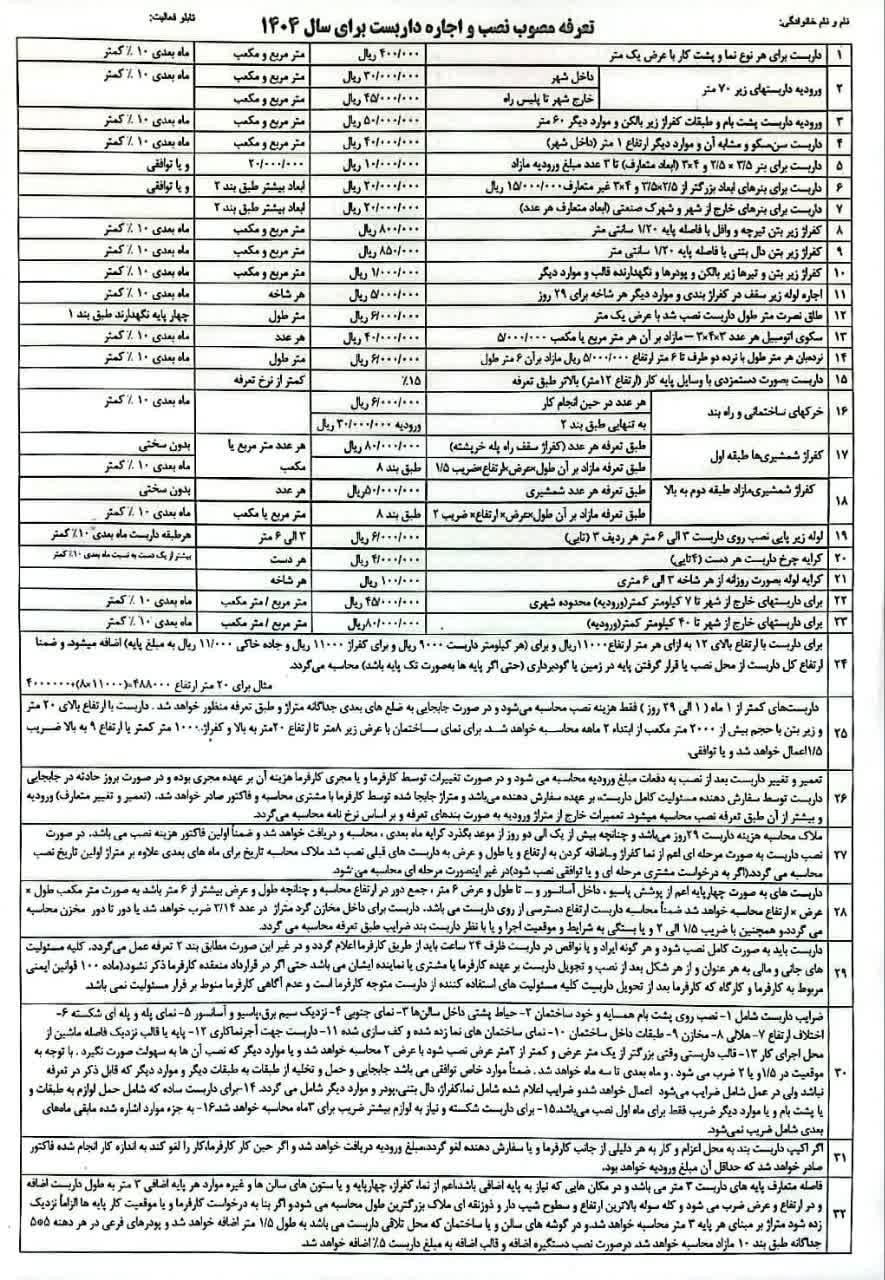 نام و نام خانوادگی:
تابلو فعالیت:
تعرفه مصوب نصب و اجاره داربست برای سال ۱۴۰۴
۱ داربست برای هر نوع نما و پشت کار با عرض یک متر ۴۰۰/۰۰۰ ریال متر مربع و مکعب ماه بعدی ۱۰ ٪ کمتر
۲ ورودیه داربستهای زیر ۷۰ متر داخل شهر ۳۰/۰۰۰/۰۰۰ ریال متر مربع و مکعب ماه بعدی ۱۰ ٪ کمتر
خارج شهر تا پلیس راه ۴۵/۰۰۰/۰۰۰ ریال متر مربع و مکعب
۳ ورودیه داربست پشت بام و طبقات کفراژ زیر بالکن و موارد دیگر ۶۰ متر ۵۰/۰۰۰/۰۰۰ ریال متر مربع و مکعب ماه بعدی ۱۰ ٪ کمتر
۴ داربست سن،سکو و مشابه آن و موارد دیگر ارتفاع ۱ متر (داخل شهر) ۴۰/۰۰۰/۰۰۰ ریال متر مربع و مکعب ماه بعدی ۱۰ ٪ کمتر
۵ داربست برای بنر ۳/۵ × ۲/۵ و ۴×۳ (ابعاد متعارف) تا ۳ عدد مبلغ ورودیه مازاد ۱۰/۰۰۰/۰۰۰ ریال ۲۰/۰۰۰/۰۰۰ و یا توافقی
۶ داربست برای بنرهای ابعاد بزرگتر از ۲/۵×۳/۵ و ۴×۳ غیر متعارف۱۵/۰۰۰/۰۰۰ ریال ۲۰/۰۰۰/۰۰۰ ریال ابعاد بیشتر طبق بند ۲ و یا توافقی
۷ داربست برای بنرهای خارج از شهر و شهرک صنعتی (ابعاد متعارف هر عدد) ۲۰/۰۰۰/۰۰۰ ریال ابعاد بیشتر طبق بند ۲
۸ کفراژ زیر بتن تیرچه و وافل با فاصله پایه ۱/۲۰ سانتی متر ۸۰۰/۰۰۰ ریال متر مربع و مکعب ماه بعدی ۱۰ ٪ کمتر
۹ کفراژ زیر بتن دال بتنی با فاصله پایه ۱/۲۰ سانتی متر ۸۵۰/۰۰۰ ریال متر مربع و مکعب ماه بعدی ۱۰ ٪ کمتر
۱۰ کفراژ زیر بتن و تیرها زیر بالکن و پودرها و نگهدارنده قالب و موارد دیگر ۱/۰۰۰/۰۰۰ ریال متر مربع و مکعب ماه بعدی ۱۰ ٪ کمتر
۱۱ اجاره لوله زیر سقف در کفراژ بندی و موارد دیگر هر شاخه برای ۲۹ روز ۵/۰۰۰/۰۰۰ ریال هر شاخه ماه بعدی ۱۰ ٪ کمتر
۱۲ طاق نصرت متر طول داربست نصب شد با عرض یک متر ۶/۰۰۰/۰۰۰ ریال متر طول چهار پایه نگهدارند طبق بند ۱
۱۳ سکوی اتومبیل هر عدد ۳×۴×۳ – مازاد بر آن هر متر مربع یا مکعب ۵/۰۰۰/۰۰۰ ۴۰/۰۰۰/۰۰۰ ریال هر عدد ماه بعدی ۱۰ ٪ کمتر
۱۴ نردبان هر متر طول با نرده دو طرف تا ۶ متر ارتفاع ۵/۰۰۰/۰۰۰ ریال مازاد برآن ۶ متر طول ۶/۰۰۰/۰۰۰ ریال متر طول ماه بعدی ۱۰ ٪ کمتر
۱۵ داربست بصورت دستمزدی با وسایل پایه کار (ارتفاع ۱۲متر) بالاتر طبق تعرفه ۱۵٪ کمتر از نرخ تعرفه
۱۶ خرکهای ساختمانی و راه بند هر عدد در حین انجام کار ۶/۰۰۰/۰۰۰ ریال ماه بعدی ۱۰ ٪ کمتر
به تنهایی طبق بند ۲ ورودیه ۳۰/۰۰۰/۰۰۰ ریال
۱۷ کفراژ شمشیری‌ها طبقه اول طبق تعرفه هر عدد (کفراژ سقف راه پله خرپشته) ۸۰/۰۰۰/۰۰۰ ریال هر عدد متر مربع یا بدون سختی
طبق تعرفه مازاد بر آن طول×عرض×ارتفاع×ضریب ۱/۵ طبق بند ۸ مکعب ماه بعدی ۱۰ ٪ کمتر
۱۸ کفراژ شمشیری‌مازاد طبقه دوم به بالا طبق تعرفه هر عدد شمشیری ۵۰/۰۰۰/۰۰۰ریال هر عدد بدون سختی
طبق تعرفه مازاد بر آن طول×عرض× ارتفاع× ضریب ۲ طبق بند ۸ متر مربع یا مکعب ماه بعدی ۱۰ ٪ کمتر
۱۹ لوله زیر پایی نصب روی داربست ۳ الی ۶ متر هر ردیف ۳ (تایی) ۶/۰۰۰/۰۰۰ ریال ۳ الی ۶ متر هرطبقه داربست ماه بعدی ۱۰٪ کمتر
۲۰ کرایه چرخ داربست هر دست (۴تایی) ۴/۰۰۰/۰۰۰ ریال هر دست بیشتر از یک دست به نسبت ماه بعدی ۱۰٪ کمتر
۲۱ کرایه لوله بصورت روزانه از هر شاخه ۳ الی ۶ متری ۱۰۰/۰۰۰ ریال هر شاخه
۲۲ برای داربستهای خارج از شهر تا ۷ کیلومتر کمتر(ورودیه) محدوده شهری ۴۵/۰۰۰/۰۰۰ ریال متر مربع / متر مکعب ماه بعدی ۱۰ ٪ کمتر
۲۳ برای داربستهای خارج از شهر تا ۴۰ کیلومتر کمتر(ورودیه) ۸۰/۰۰۰/۰۰۰ریال متر مربع / متر مکعب ماه بعدی ۱۰ ٪ کمتر
۲۴ برای داربست با ارتفاع بالای ۱۲ به ازای هر متر ارتفاع۱۱۰۰۰ریال و برای (هر کیلومتر داربست ۹۰۰۰ ریال و برای کفراژ ۱۱۰۰۰ ریال و جاده خاکی ۱۱/۰۰۰ ریال به مبلغ پایه) اضافه میشود. و ضمنا
ارتفاع کل داربست از محل نصب یا قرار گرفتن پایه در زمین یا گودبرداری (حتی اگر پایه ها به‌صورت تک پایه باشد) محاسبه می‌گردد.
مثال برای ۲۰ متر ارتفاع ۴۸۸۰۰۰=(۱۱۰۰۰×۸)+۴۰۰۰۰۰
۲۵ داربست‌های کمتر از ۱ ماه ( ۱ الی ۲۹ روز ) فقط هزینه نصب محاسبه می‌شود و در صورت جابجایی به ضلع های بعدی جداگانه متراژ و طبق تعرفه منظور خواهد شد . داربست با ارتفاع بالای ۲۰ متر
و زیر بتن با حجم بیش از ۲۰۰۰ متر مکعب از ابتداء ۲ ماهه محاسبه خواهد شد. برای نمای ساختمان با عرض زیر ۸متر تا ارتفاع ۲۰متر به بالا و کفراژ ۱۰۰۰ متر کمتر با ارتفاع ۹ به بالا ضریب
۱/۵اعمال خواهد شد و یا توافقی.
۲۶ تعمیر و تغییر داربست بعد از نصب به دفعات مبلغ ورودیه محاسبه می شود و در صورت تغییرات توسط کارفرما و یا مجری کارفرما هزینه آن بر عهده مجری بوده و در صورت بروز حادثه در جابجایی
داربست توسط سفارش دهنده مسئولیت کامل داربست، بر عهده سفارش دهنده می‌باشد و متراژ جابجا شده توسط کارفرما با مشتری محاسبه و فاکتور صادر خواهد شد. (تعمیر و تغییر متعارف) ورودیه
و بیشتر از آن طبق تعرفه نصب محاسبه میشود. تعمیرات خارج از متراژ ورودیه به صورت بندهای تعرفه و بر اساس نرخ نامه محاسبه می‌گردد.
۲۷ ملاک محاسبه هزینه داربست ۲۹روز می‌باشد و چنانچه بیش از یک الی دو روز از موعد بگذرد کرایه ماه بعدی ، محاسبه و دریافت خواهد شد و ضمناً اولین فاکتور هزینه نصب می باشد. در صورت
نصب داربست به صورت مرحله ای اعم از نما کفراژ و..اضافه کردن به ارتفاع و یا طول و عرض به داربست های قبلی نصب شد ملاک محاسبه تاریخ برای ماه های بعدی علاوه بر متراژ اولین تاریخ نصب
محاسبه می گردد.(اگر به درخواست مشتری مرحله ای و یا توافقی نصب شود)در غیر اینصورت مرحله ای محاسبه می شود.
۲۸ داربست های به صورت چهارپایه اعم از پوشش پاسیو ، داخل آسانسور و ... تا طول و عرض ۶ متر ، جمع دور در ارتفاع محاسبه و چنانچه طول و عرض بیشتر از ۶ متر باشد به صورت متر مکعب طول ×
عرض × ارتفاع محاسبه خواهد شد ضمناً محاسبه داربست ارتفاع دسترسی از روی داربست می باشد. داربست برای داخل مخازن گرد متراژ در عدد ۳/۱۴ ضرب خواهد شد یا دور تا دور مخزن محاسبه
می گردد.و همچنین با ضریب ۱/۵ الی ۲ و یا بستگی به شرایط و موقعیت اجرا و یا با نظر داربست بند ضرایب طبق تعرفه محاسبه می گردد.
۲۹ داربست باید به صورت کامل نصب شود و هر گونه ایراد و یا نواقص در داربست ظرف ۲۴ ساعت باید از طریق کارفرما اعلام گردد و در غیر این صورت مطابق بند ۲ تعرفه عمل می‌گردد. کلیه مسئولیت
های جانی و مالی به هر عنوان و از هر شکل بعد از نصب و تحویل داربست بر عهده کارفرما یا مشتری یا نماینده ایشان می باشد حتی اگر در قرارداد منعقده کارفرما ذکر نشود.(ماده ۱۰۰ قوانین ایمنی
مربوط به کارفرما و کارگاه که کارفرما بعد از تحویل داربست کلیه مسئولیت های استفاده کننده از داربست متوجه کارفرما است و عدم آگاهی کارفرما منوط بر فرار مسئولیت نمی باشد.
۳۰ ضرایب داربست شامل ۱- نصب روی پشت بام همسایه و خود ساختمان ۲- حیاط پشتی داخل سالن‌ها ۳- نمای جنوبی ۴- نزدیک سیم برق،پاسیو و آسانسور ۵- نمای پله و پله ای شکسته ۶-
اختلاف ارتفاع ۷- هلالی ۸- مخازن ۹- طبقات داخل ساختمان ۱۰- نمای ساختمان های نما زده شده و کف سازی شده ۱۱- داربست جهت آجرنماکاری ۱۲- پایه یا قالب نزدیک فاصله ماشین از
محل اجرای کار ۱۳- قالب داربستی وقتی بزرگتر از یک متر عرض و کمتر از ۲متر عرض نصب شود با عرض ۲ محاسبه خواهد شد و یا موارد دیگر که نصب آن ها به سهولت صورت نگیرد . با توجه به
موقعیت در ۱/۵و یا ۲ ضرب می شود . و ماه بعدی تا سه ماه خواهد شد . ضمناً موارد خاص توافقی می باشد جابجایی و حمل و تخلیه از طبقات به طبقات دیگر و موارد دیگر که قابل ذکر در تعرفه
نباشد ولی در عمل شامل ضرایب می‌شود اعمال خواهد شد،و ضرایب اعلام شده شامل نما،کفراژ، دال بتنی،پودر و موارد دیگر شامل می گردد. ۱۴-برای داربست ساده که شامل حمل لوازم به طبقات و
یا پشت بام و یا موارد دیگر ضریب فقط برای ماه اول نصب می‌باشد.۱۵- برای داربست شکسته و نیاز به لوازم بیشتر ضریب برای ۳ماه محاسبه خواهد شد.۱۶- به جزء موارد اشاره شده مابقی ماه‌های
بعدی شامل ضریب نمی‌شود.
۳۱ اگر اکیپ داربست بند به محل اعزام و کار به هر دلیلی از جانب کارفرما و یا سفارش دهنده لغو گردد،مبلغ ورودیه دریافت خواهد شد و اگر حین کار کارفرما،کار را لغو کند به اندازه کار انجام شده فاکتور
صادر خواهد شد که حداقل آن مبلغ ورودیه خواهد بود.
۳۲ فاصله متعارف پایه های داربست ۳ متر می باشد و در مکان هایی که نیاز به پایه اضافی باشد،اعم از نما، کفراژ، چهارپایه و یا ستون های سالن ها و غیره موارد هر پایه اضافی ۳ متر به طول داربست اضافه
و در ارتفاع و عرض ضرب می شود و کله سوله بالاترین ارتفاع و سطوح شیب دار و ذوزنقه ای ملاک بزرگترین طول محاسبه می شود.و اگر بنا به درخواست کارفرما و یا موقعیت کار پایه ها الزاماً نزدیک
زده شود متراژ بر مبنای هر پایه ۳ متر محاسبه خواهد شد.و در گوشه های سالن و یا ساختمان که محل تلاقی داربست می باشد به طول ۱/۵ متر اضافه خواهد شد و پودرهای فرعی در هر دهنه ۵*۵
جداگانه طبق بند ۱۰ مازاد محاسبه خواهد شد. درصورت نصب دستگیره اضافه و قالب اضافه به مبلغ داربست ۵٪ اضافه خواهد شد.